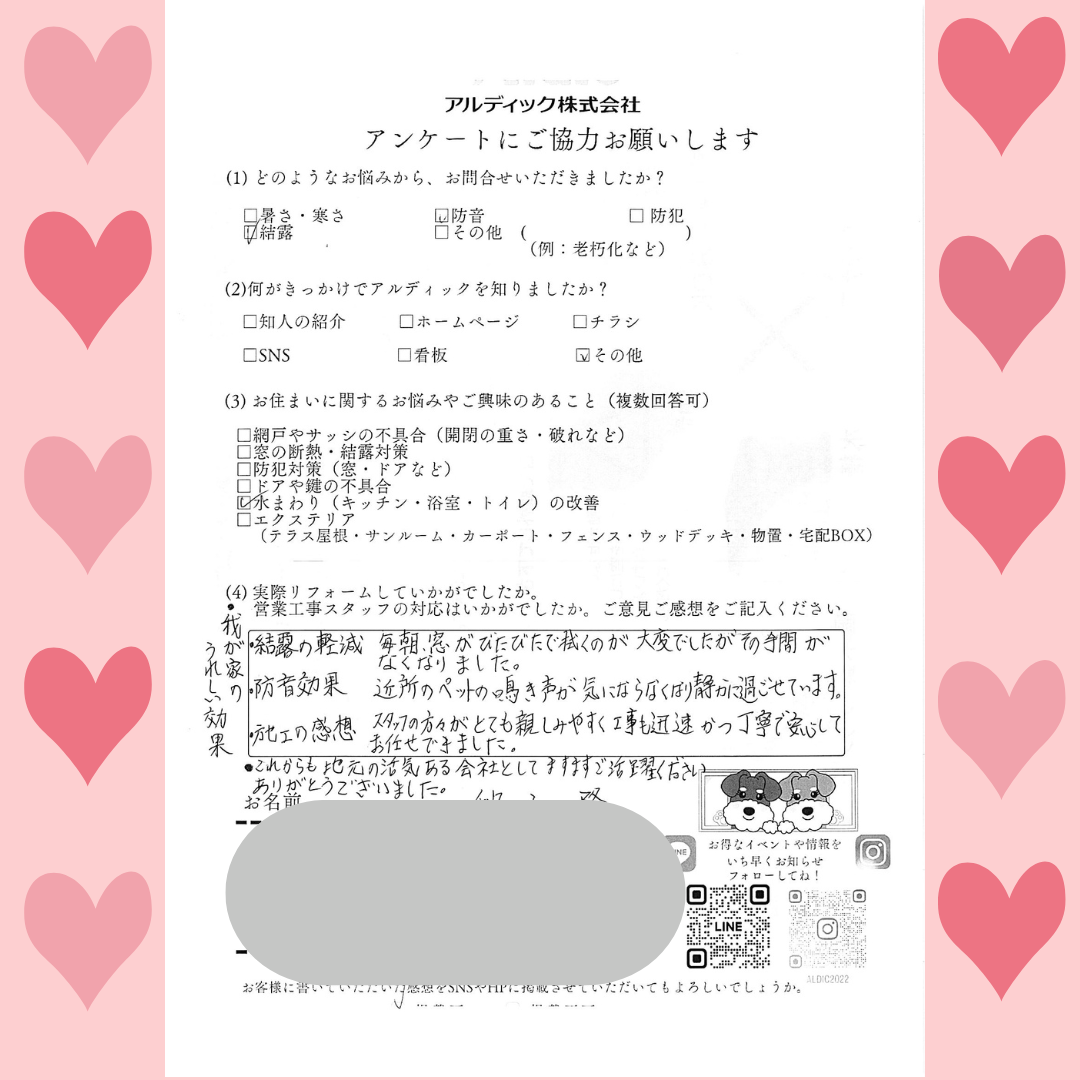 アルディック株式会社
アンケートにご協力お願いします
(1) どのようなお悩みから、お問合せいただきましたか？
□暑さ・寒さ ☑防音 □ 防犯
☑結露 □その他 ( )
（例：老朽化など）
(2)何がきっかけでアルディックを知りましたか？
□知人の紹介 □ホームページ □チラシ
□SNS □看板 ☑その他
(3) お住まいに関するお悩みやご興味のあること（複数回答可）
□網戸やサッシの不具合（開閉の重さ・破れなど）
□窓の断熱・結露対策
□防犯対策（窓・ドアなど）
□ドアや鍵の不具合
☑水まわり（キッチン・浴室・トイレ）の改善
□エクステリア
（テラス屋根・サンルーム・カーポート・フェンス・ウッドデッキ・物置・宅配BOX）
(4) 実際リフォームしていかがでしたか。
営業工事スタッフの対応はいかがでしたか。ご意見ご感想をご記入ください。
●我が家の
うれしい効果
・結露の軽減 毎朝、窓がびたびたで拭くのが大変でしたがその手間が
なくなりました。
・防音効果 近所のペットの鳴き声が気にならなくなり静かに過ごせています。
・施工の感想 スタッフの方々がとても親しみやすく工事も迅速かつ丁寧で安心して
お任せできました。
●これからも地元の活気ある会社としてますますご活躍ください
ありがとうございました。
お名前
お得なイベントや情報を
いち早くお知らせ
フォローしてね！
LINE
LINE
ALDIC2022
お客様に書いていただいた感想をSNSやHPに掲載させていただいてもよろしいでしょうか。